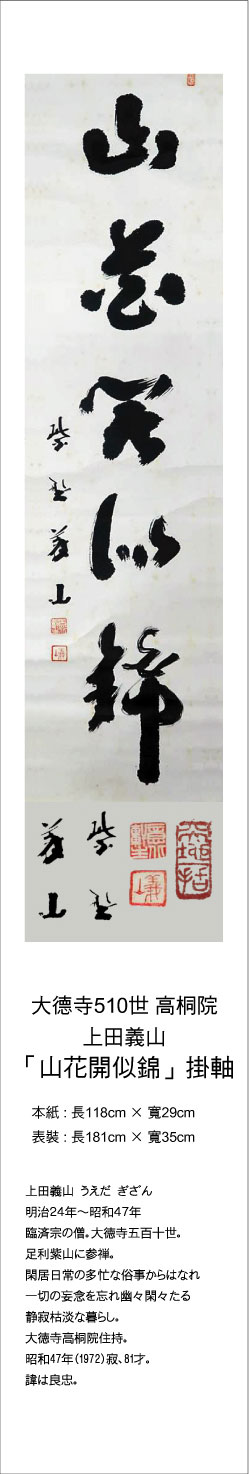 山花開似錦
紫野義山
大徳寺510世 高桐院
上田義山
「山花開似錦」掛軸
本紙：長118cm × 寬29cm
表裝：長181cm × 寬35cm
上田義山 うえだ ぎざん
明治24年～昭和47年
臨済宗の僧。大徳寺五百十世。
足利紫山に参禅。
閑居日常の多忙な俗事からはなれ
一切の妄念を忘れ幽々閑々たる
静寂枯淡な暮らし。
大徳寺高桐院住持。
昭和47年(1972)寂、81才。
諱は良忠。